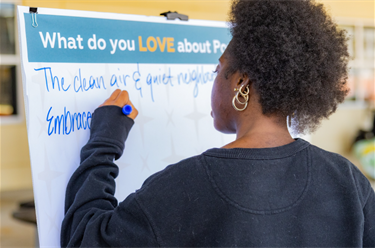 What do you LOVE about Po
The clean air & quiet neighbor
Embrace